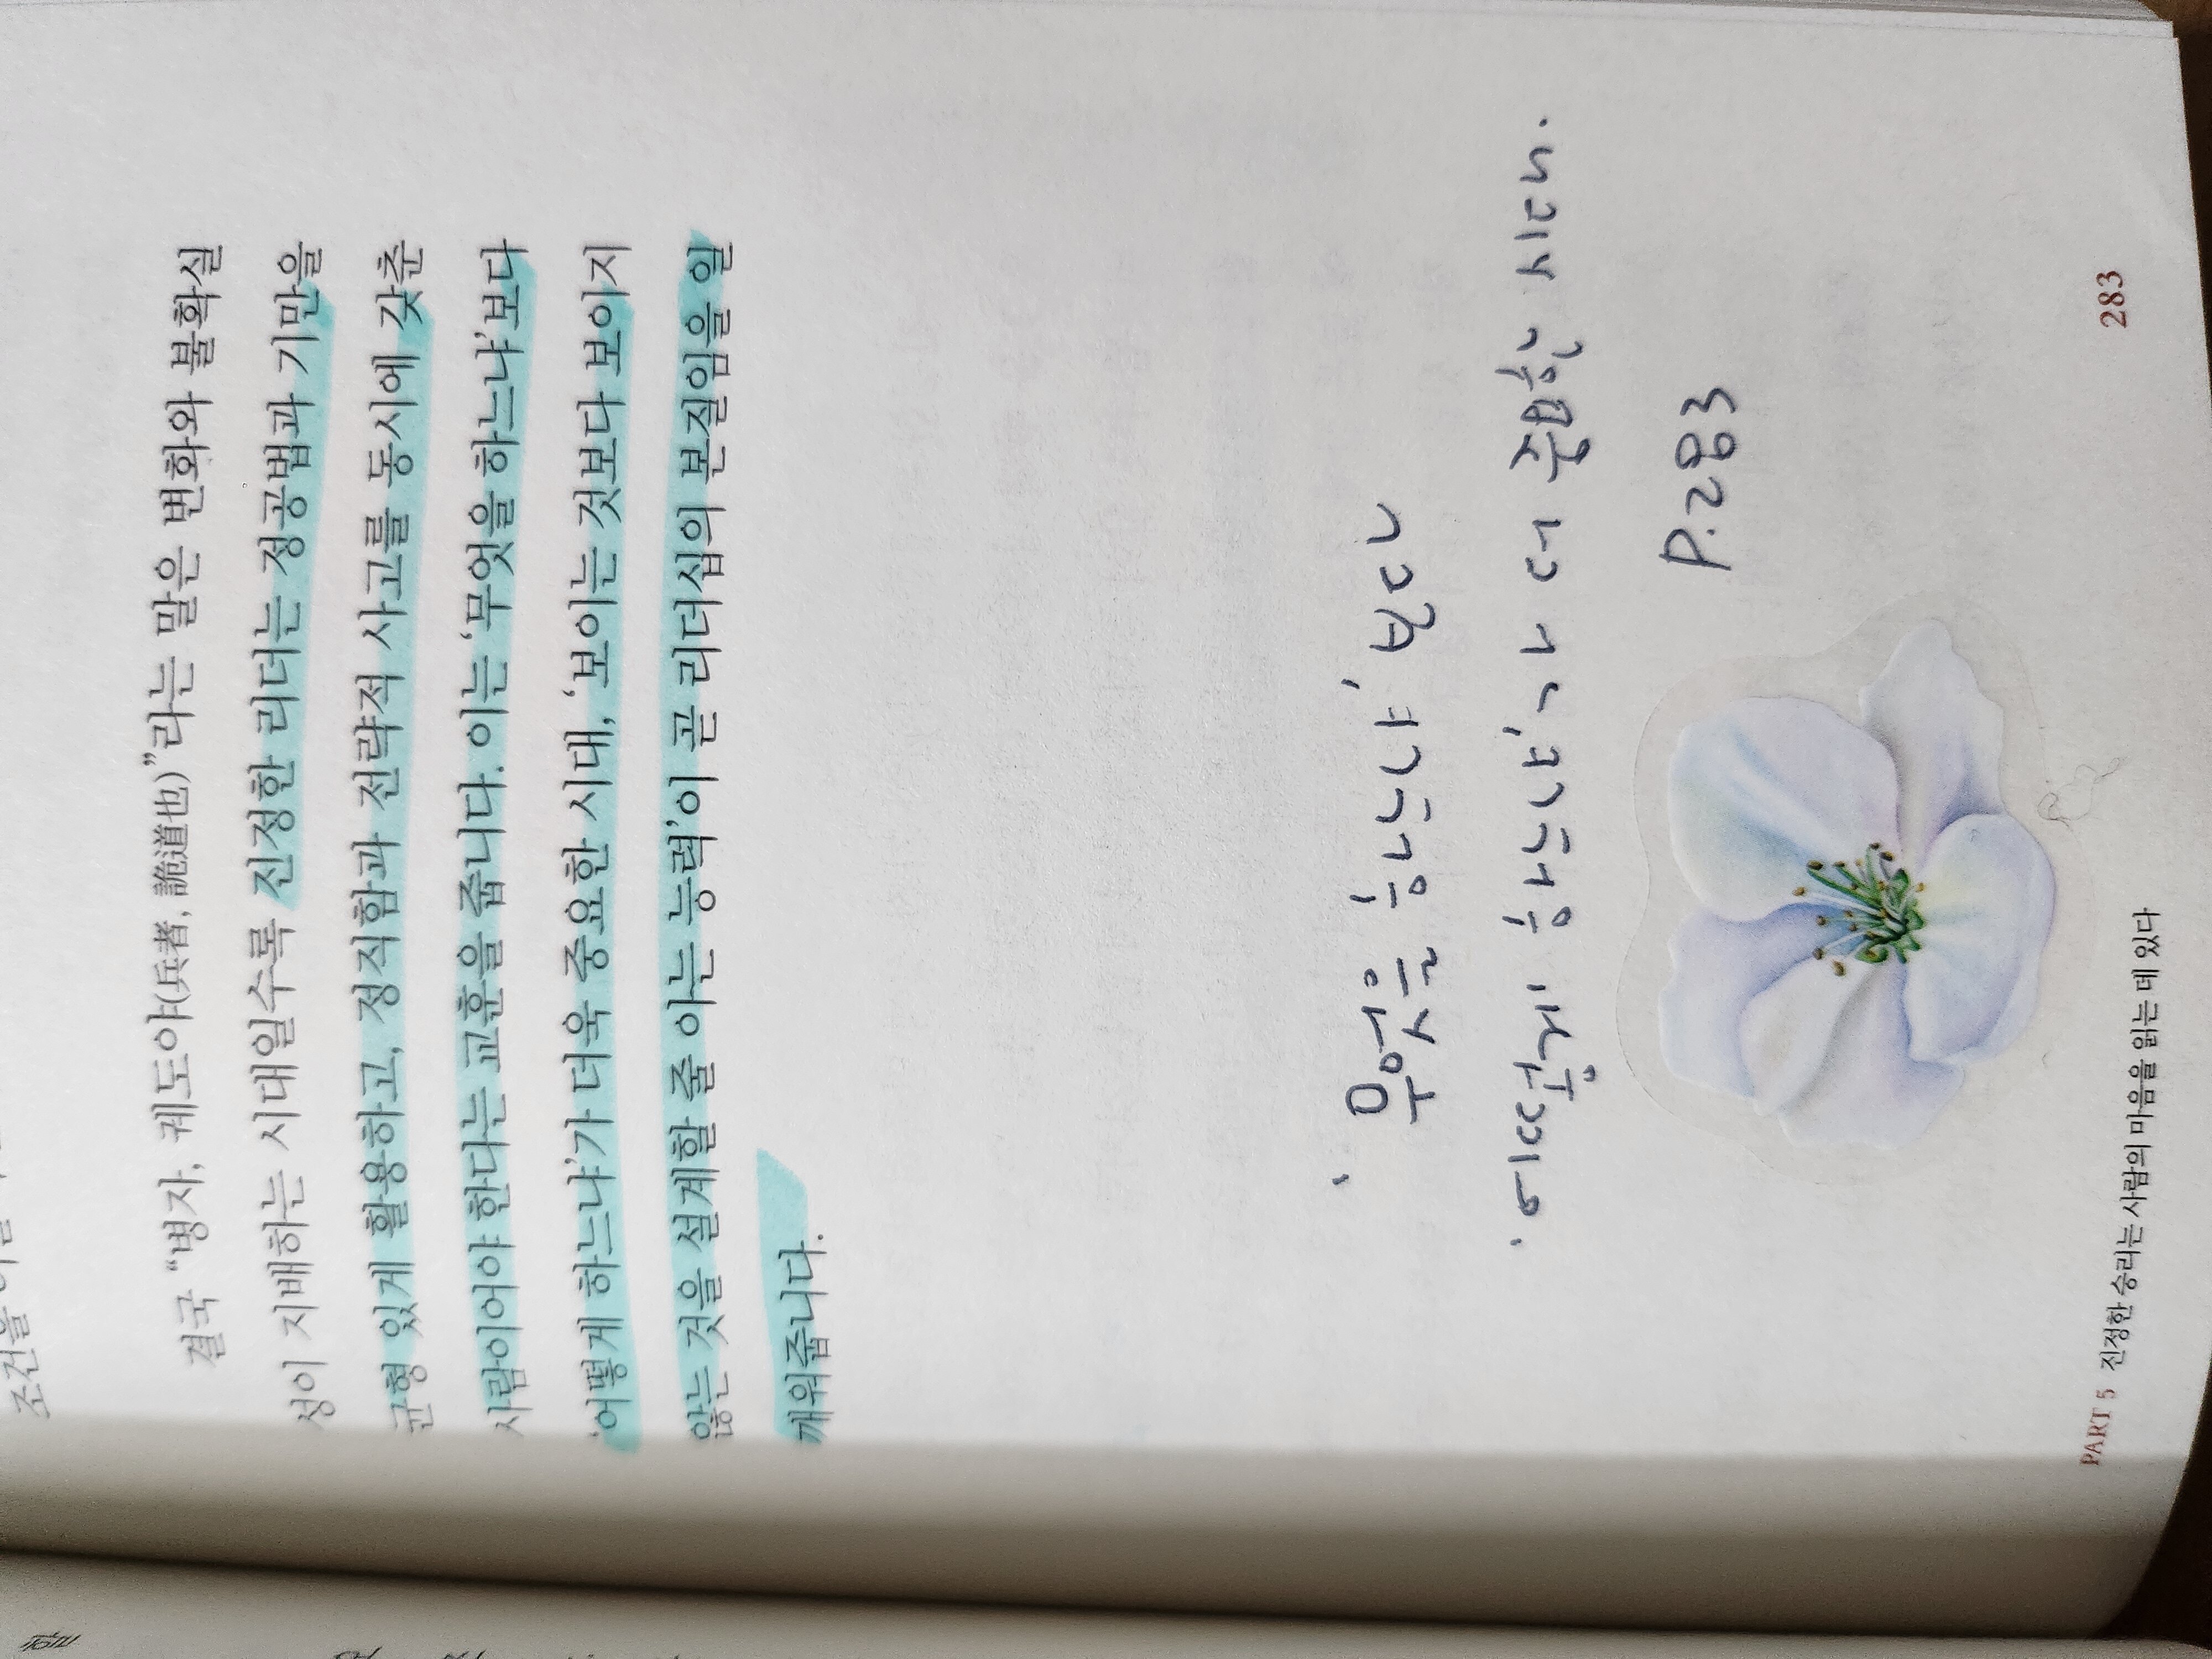 조건을
결국 “병자, 궤도야(兵者, 詭道也)”라는 말은 변화와 불확실
성이 지배하는 시대일수록 진정한 리더는 정공법과 기만을
균형 있게 활용하고, 정직함과 전략적 사고를 동시에 갖춘
사람이어야 한다는 교훈을 줍니다. 이는 ‘무엇을 하느냐’보다
‘어떻게 하느냐’가 더욱 중요한 시대, ‘보이는 것보다 보이지
않는 것을 설계할 줄 아는 능력’이 곧 리더십의 본질임을 일
깨워줍니다.
'무엇을 하느냐' 보다
'어떻게 하느냐' 가 더 중요한 시대.
P.283
PART 5 진정한 승리는 사람의 마음을 읽는 데 있다
283